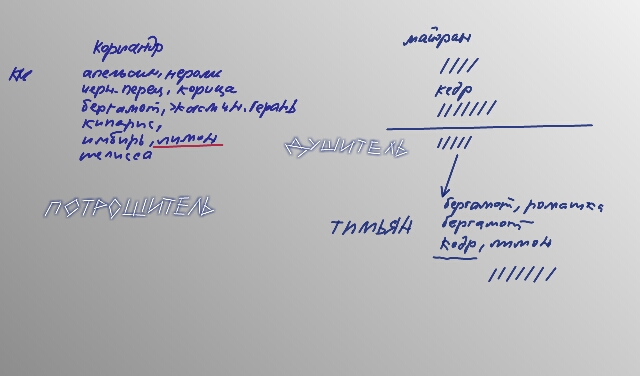 Кориандр
апельсин, нероли
черн. перец, корица
бергамот, жасмин. герань
кипарис,
имбирь, лимон
мелисса
ПОТРОШИТЕЛЬ
майоран
кедр
ДУШИТЕЛЬ
бергамот, ромашка
ТИМЬЯН
бергамот
кедр, лимон